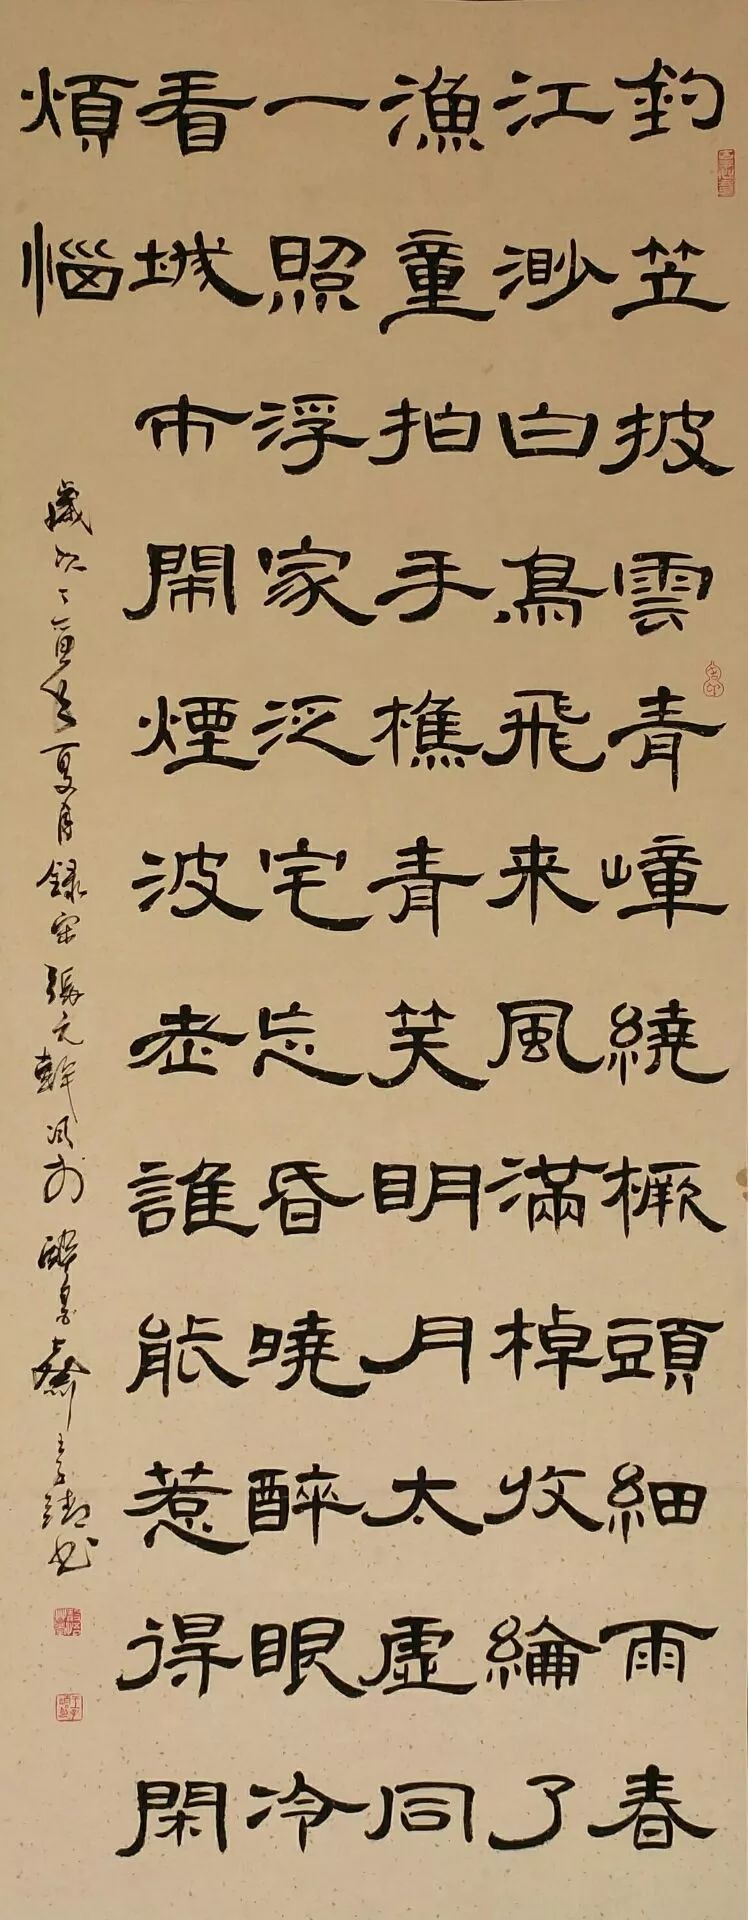 釣笠披雲青嶂繞橛頭細雨春
江渺白鳥飛来風滿棹收綸了
漁童拍手樵青笑明月太虛同
一照浮家泛宅忘昏曉醉眼冷
看城市鬧煙波老誰能惹得閑
煩惱
歲次丁酉年夏月錄宋張元幹詞於醉墨齋